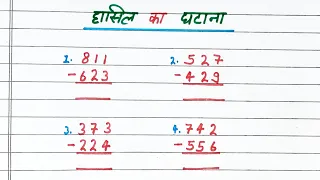 हासिल का घटाना
1. 811 2. 527
-623 -429
3. 373 4. 742
-224 -556